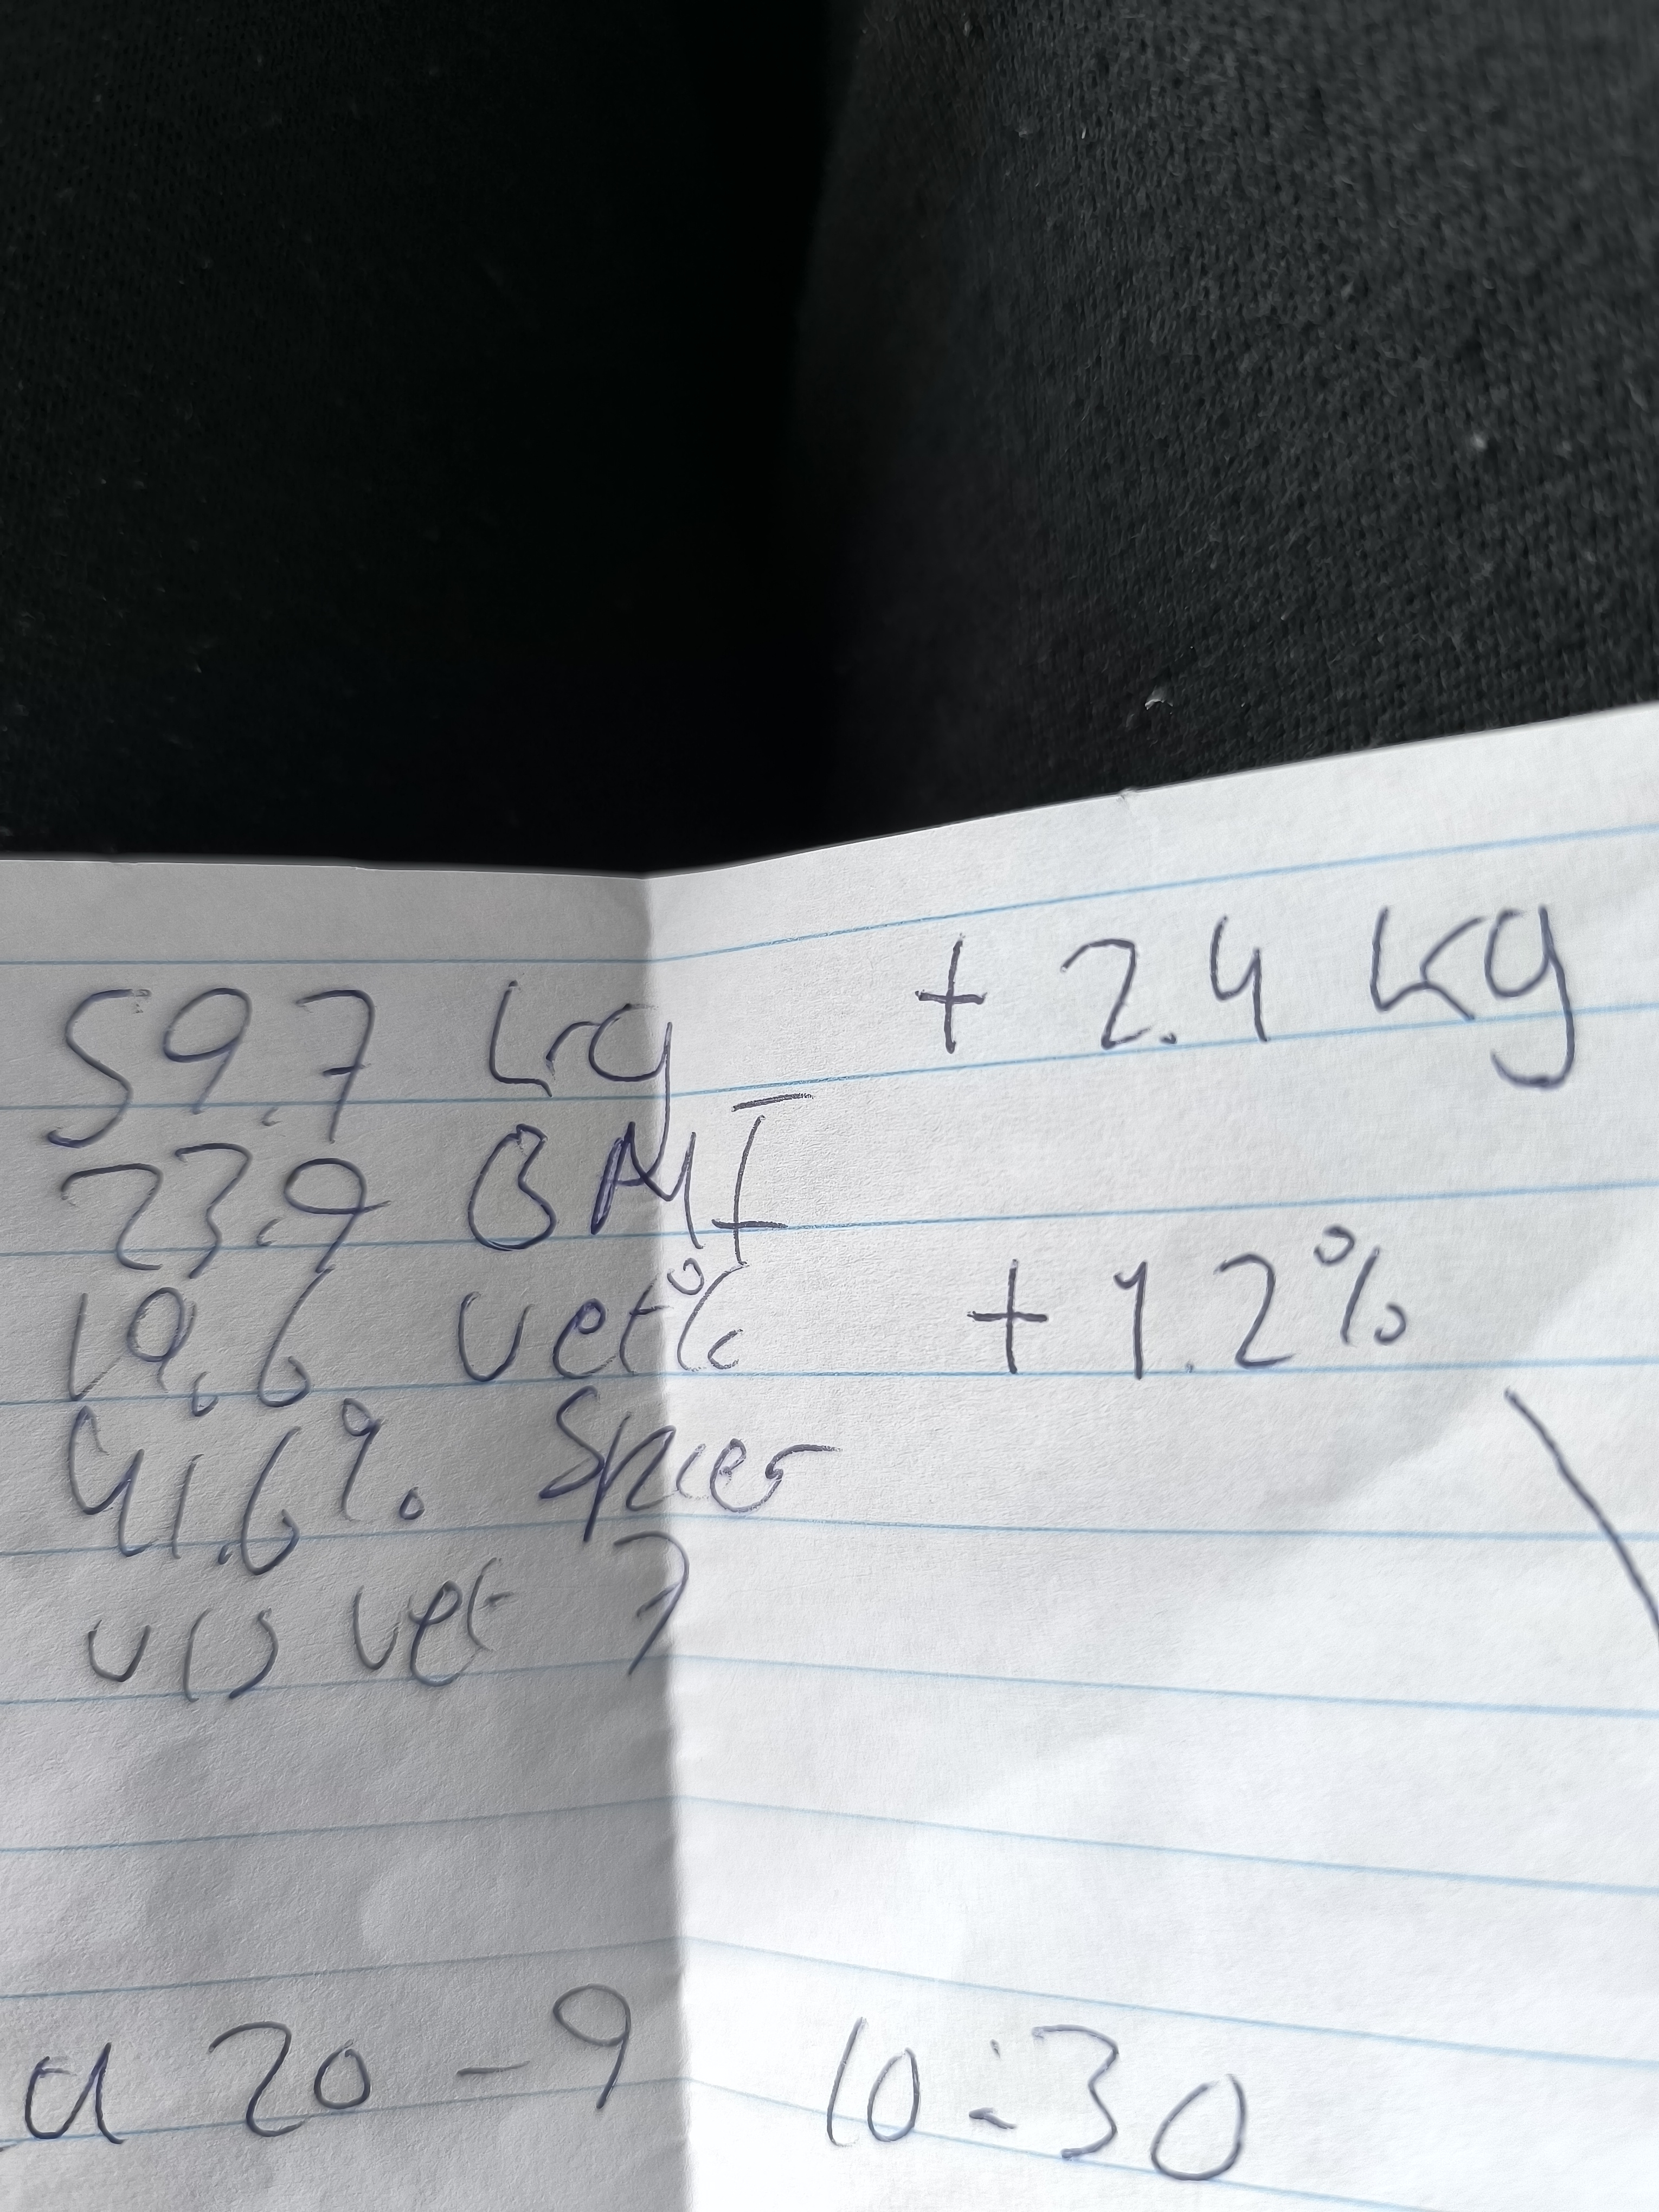 59.7 kg + 2.4 kg
23.9 BMI
19.6 vet% + 1.2%
41.6% Spier
vis vet 7
a 20-9 10:30